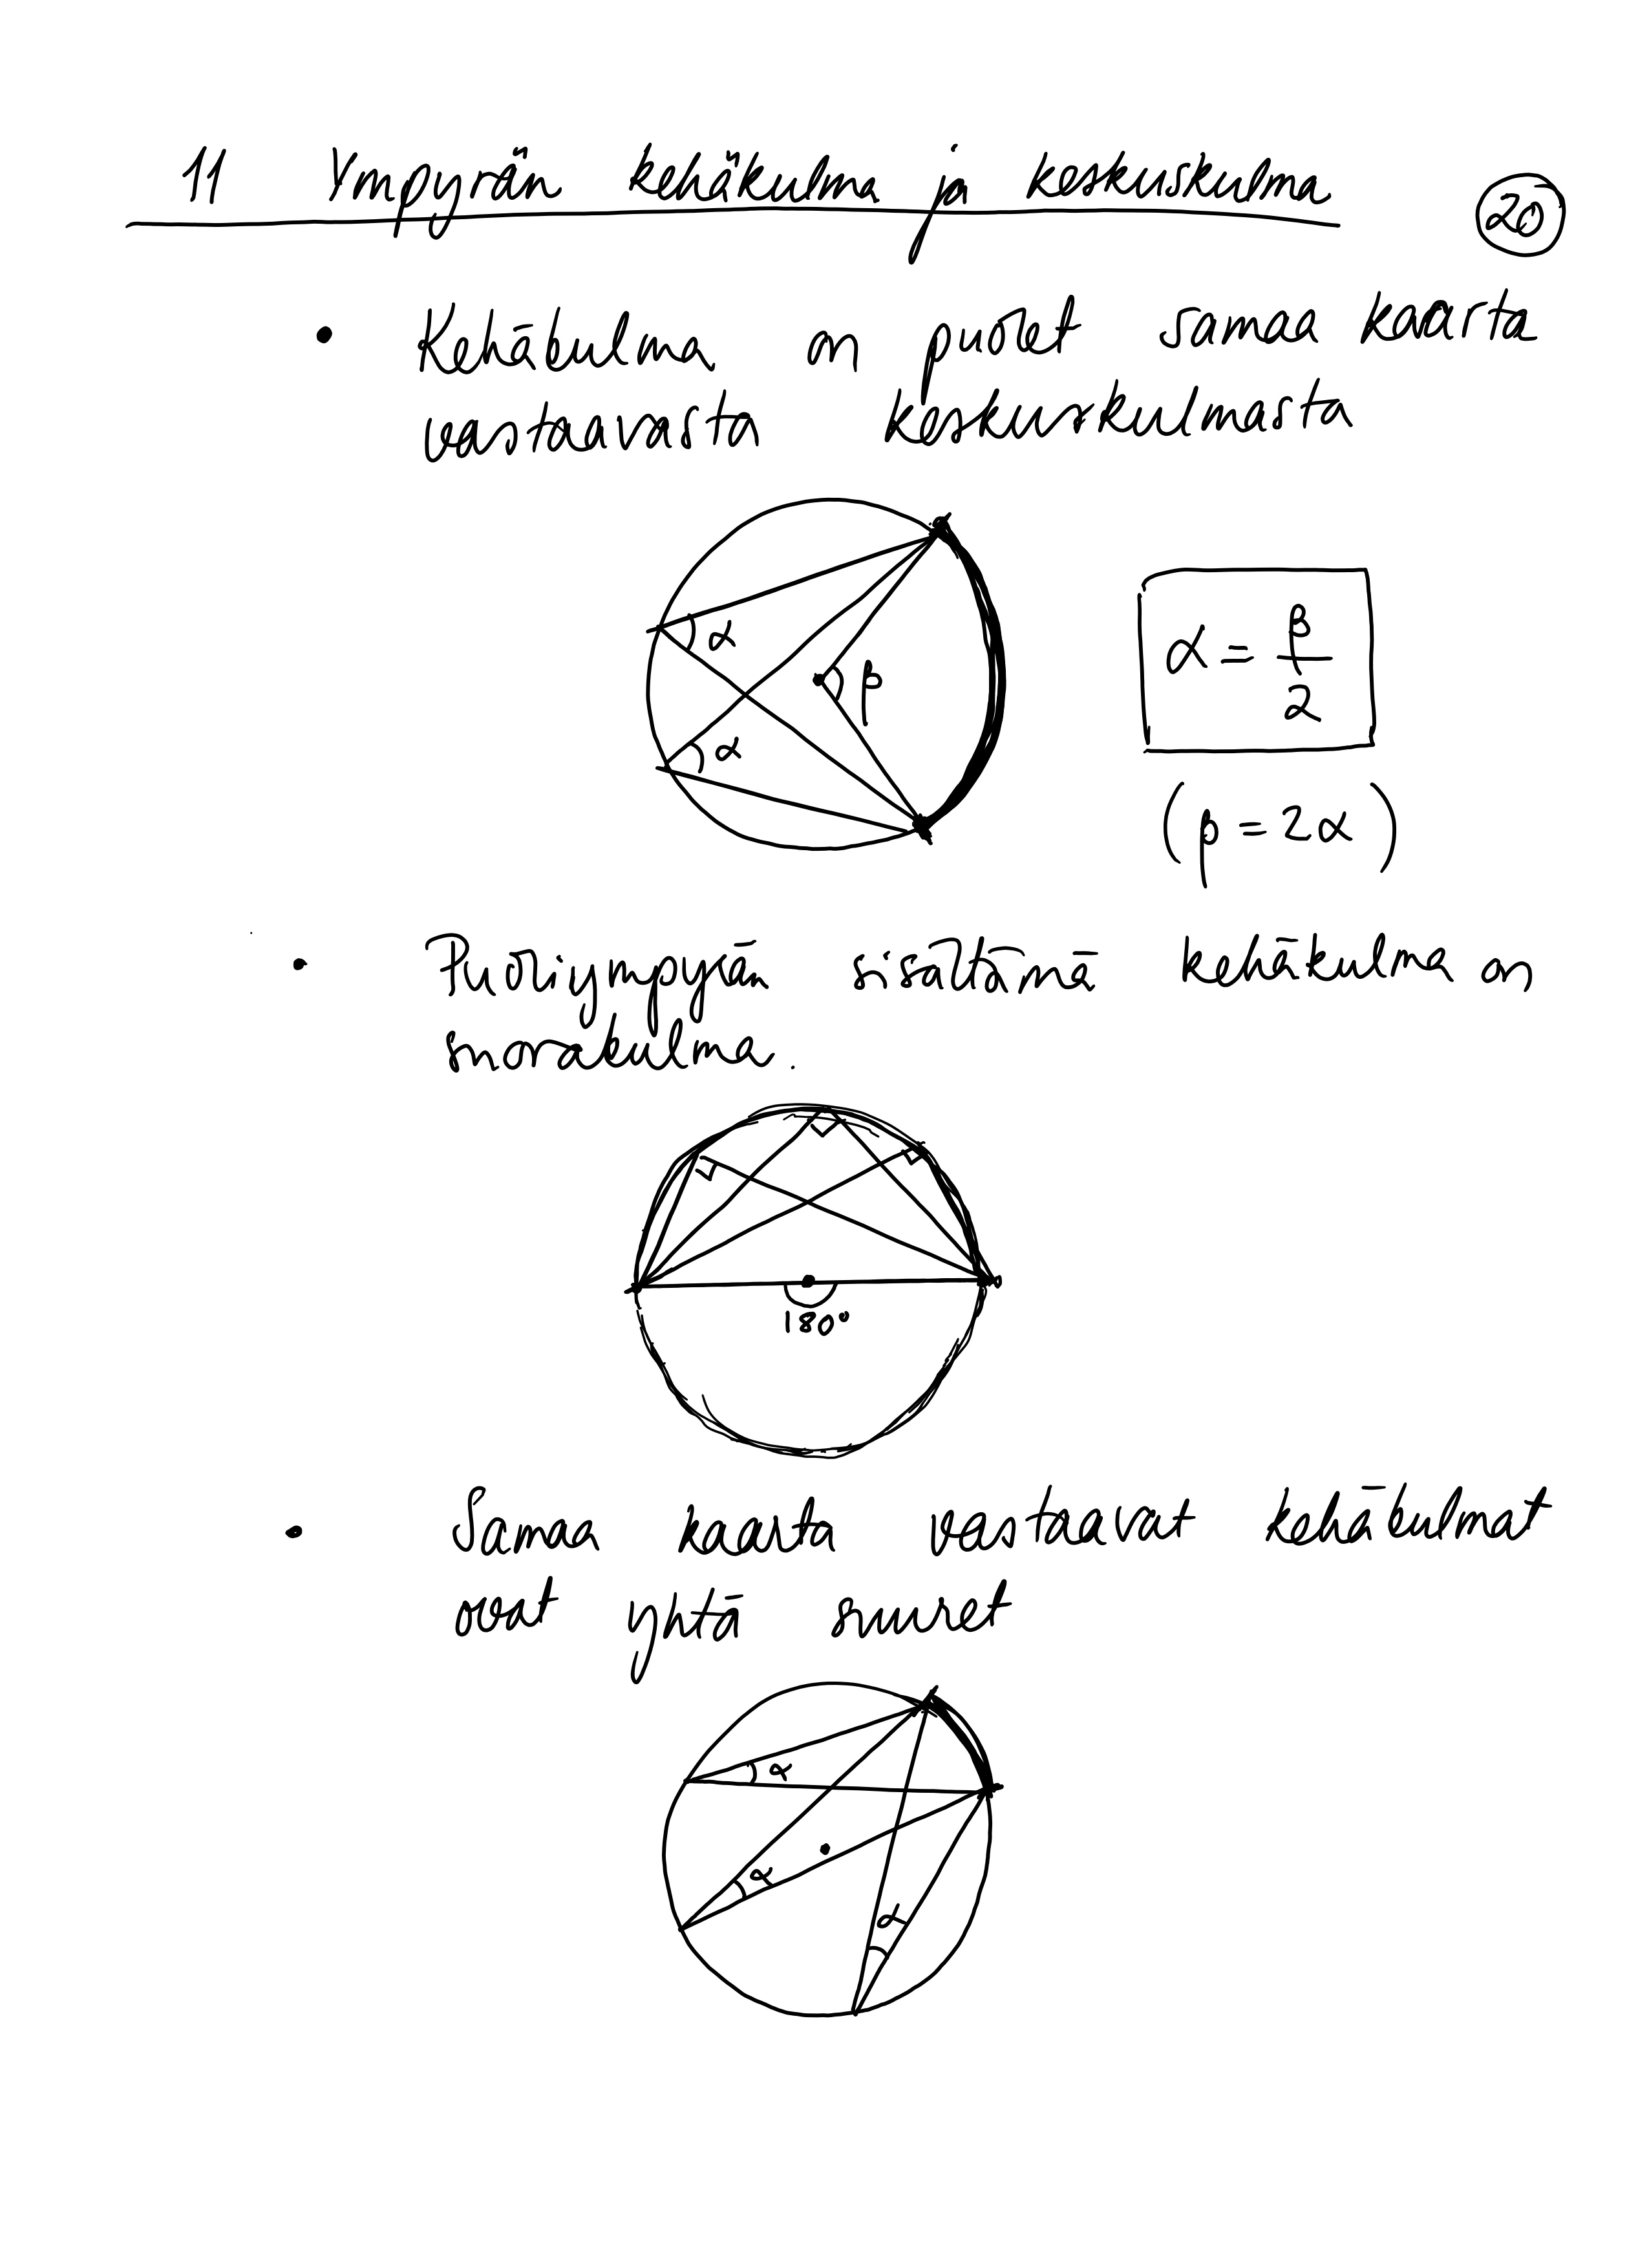 11 Ympyrän kehäkulma ja keskuskulma
20
• Kehäkulma on puolet samaa kaarta
vastaavasta keskuskulmasta
α
β
α
α = β/2
(β = 2α)
• Puoliympyrän sisältämä kehäkulma on
suorakulma.
180°
• Samaa kaarta vastaavat kehäkulmat
ovat yhtä suuret
α
α
α